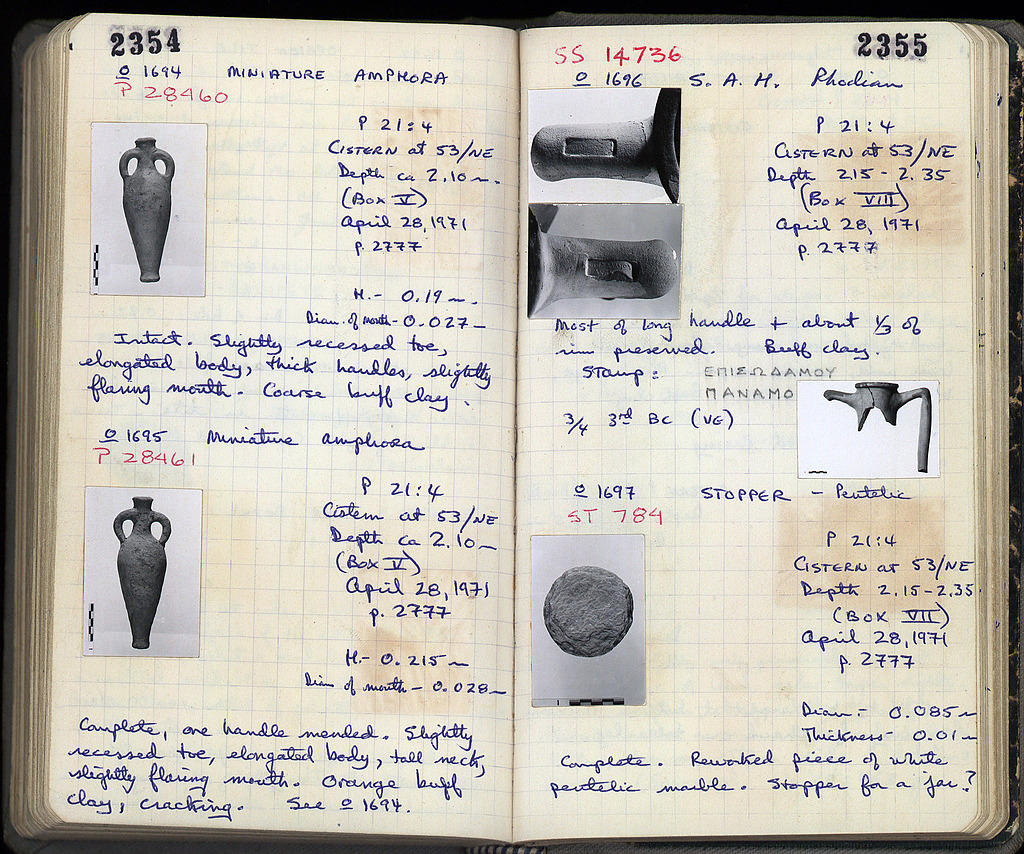 2354
O 1694 MINIATURE AMPHORA
P 28460
P 21:4
CISTERN at 53/NE
Depth ca 2.10 m.
(Box V)
April 28, 1971
p. 2777
H.- 0.19 m.
Diam. of mouth - 0.027 m
Intact. Slightly recessed toe,
elongated body, thick handles, slightly
flaring mouth. Coarse buff clay.
O 1695 Miniature amphora
P 28461
P 21:4
Cistern at 53/NE
Depth ca 2.10 m
(Box V)
April 28, 1971
p. 2777
H.- 0.215 m
Diam of mouth - 0.028 m
Complete, one handle mended. Slightly
recessed toe, elongated body, tall neck,
slightly flaring mouth. Orange buff
clay, cracking. See O 1694.
2355
SS 14736
O 1696 S.A.H. Rhodian
P 21:4
CISTERN at 53/NE
Depth 2.15 - 2.35
(Box VIII)
April 28, 1971
p. 2777
Most of long handle + about 1/3 of
rim preserved. Buff clay.
Stamp: ΕΠΙΣΩΔΑΜΟΥ
ΠΑΝΑΜΟ
3/4 3rd BC (VG)
O 1697 STOPPER - Pentelic
ST 784
P 21:4
CISTERN at 53/NE
Depth 2.15-2.35
(Box VII)
April 28, 1971
p. 2777
Diam.- 0.085 m
Thickness- 0.01 m
Complete. Reworked piece of white
pentelic marble. Stopper for a jar?